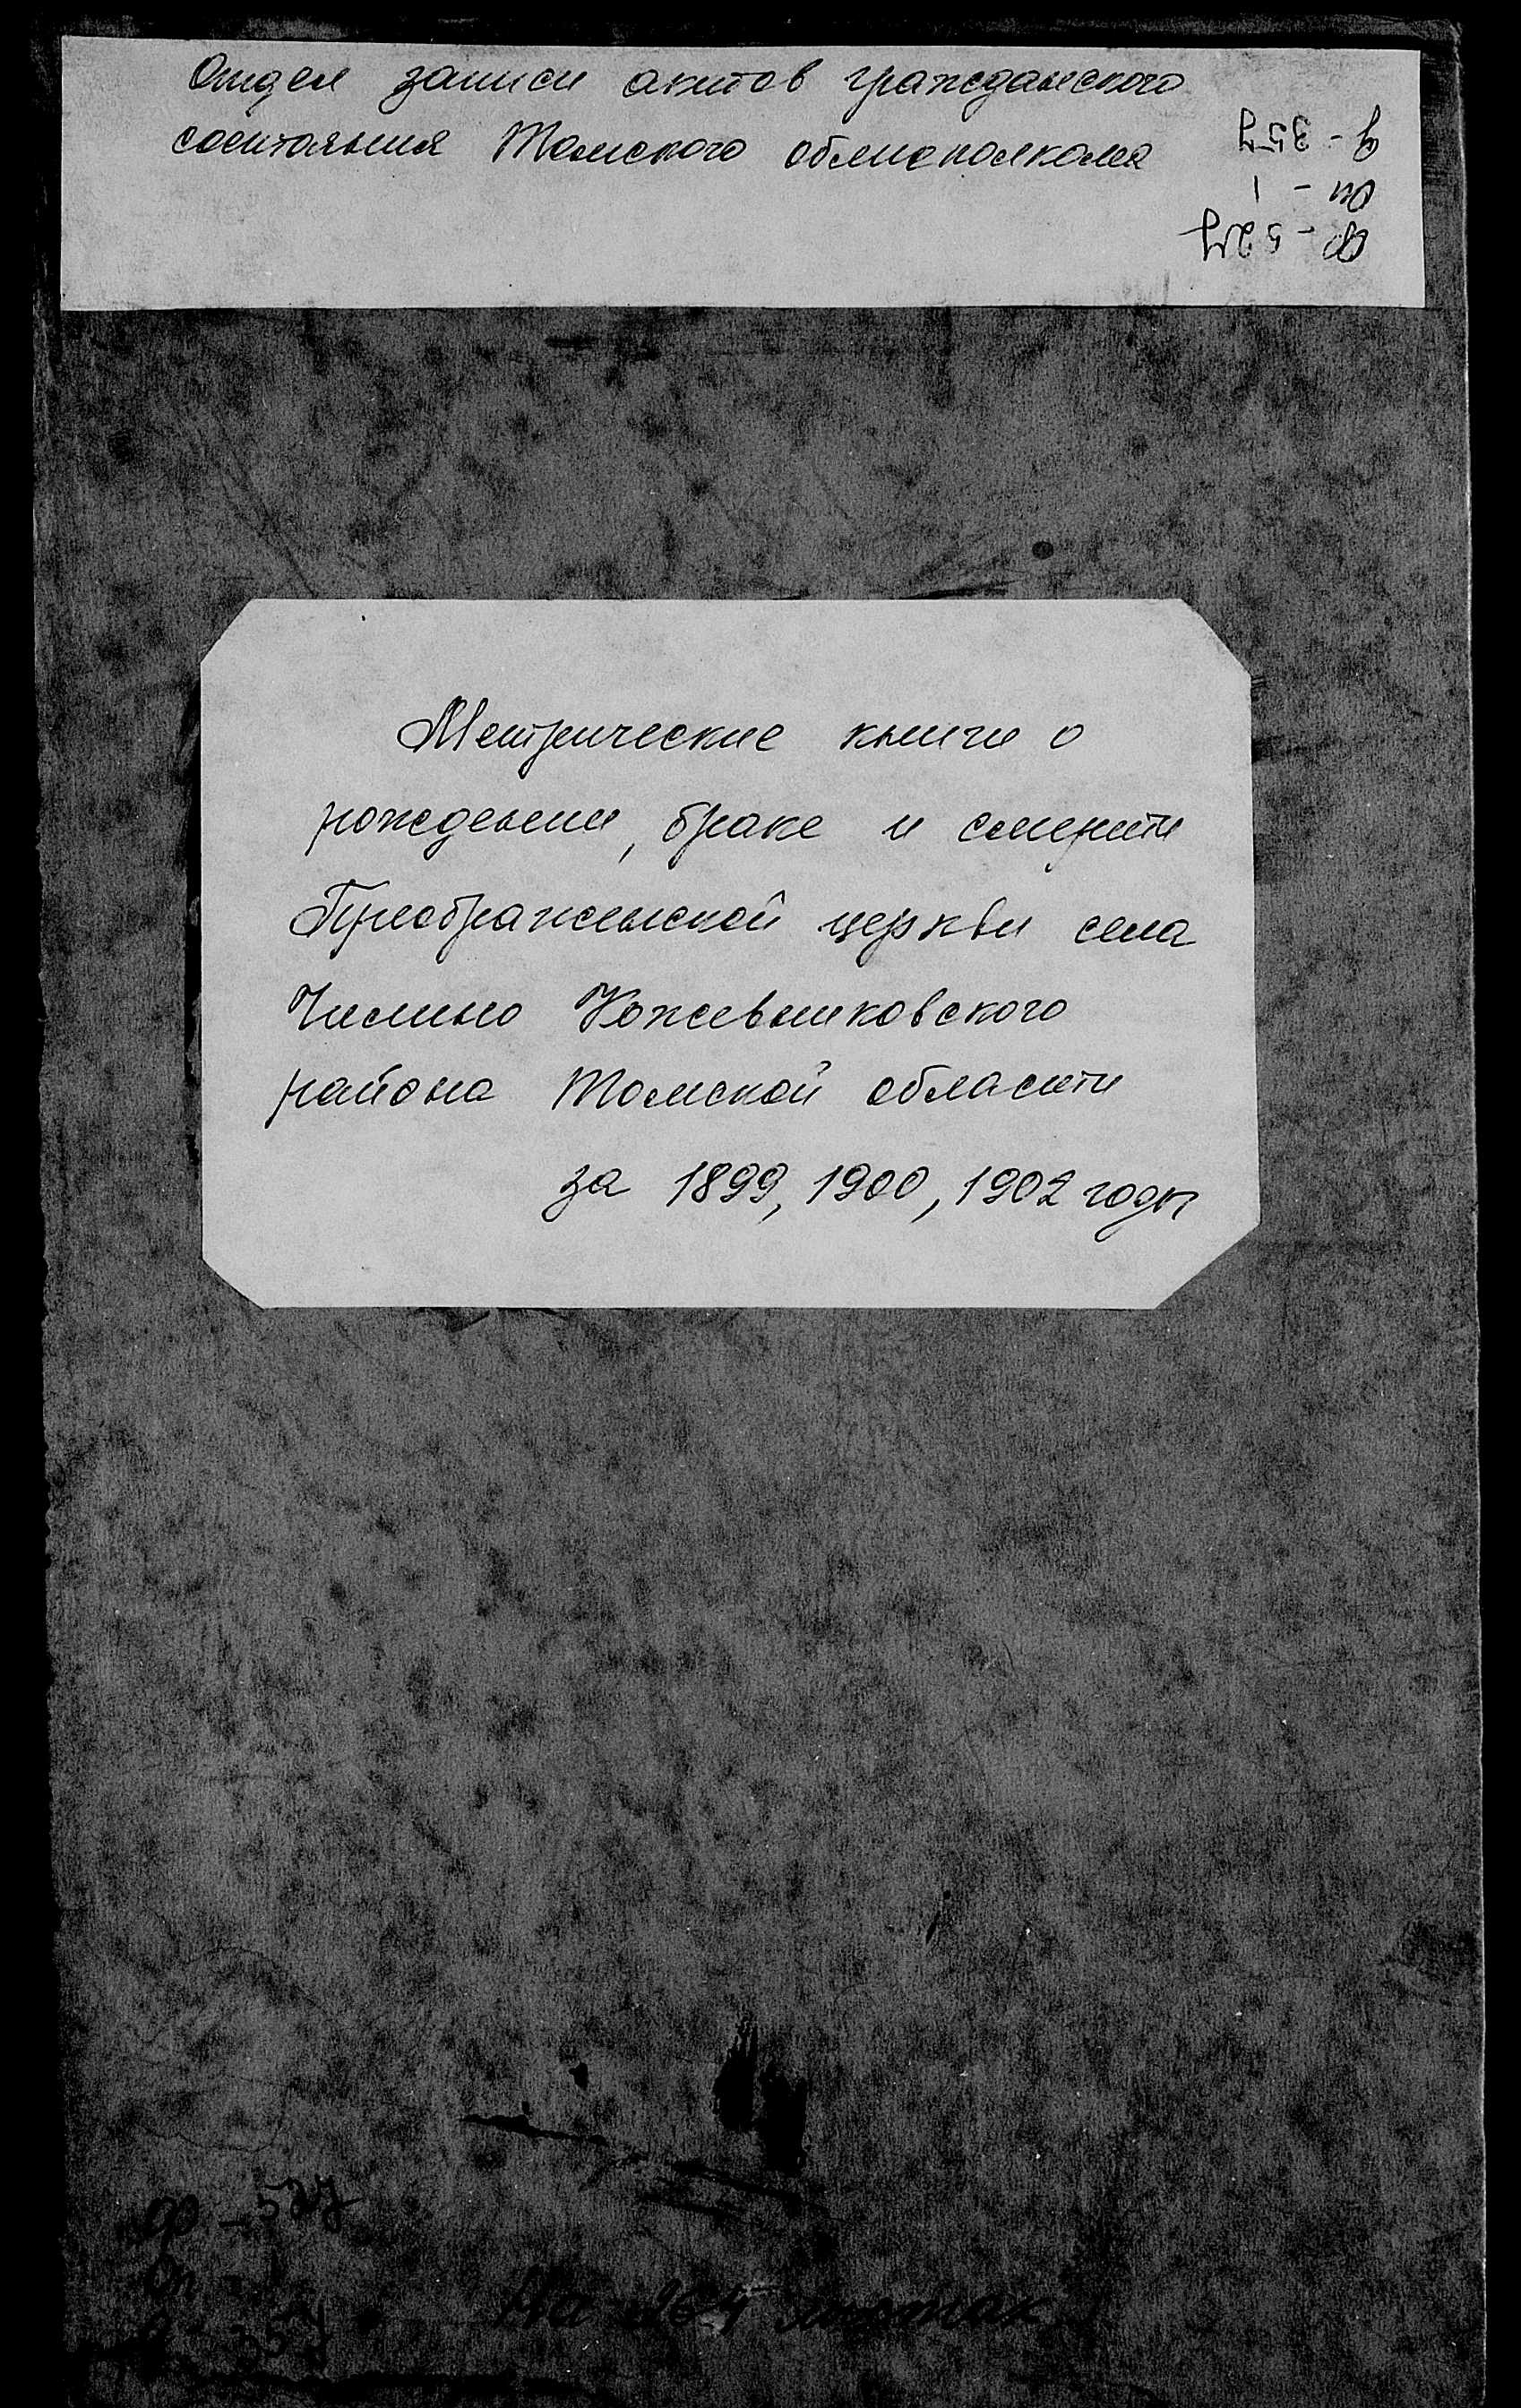 Отдел записи актов гражданского
состояния Томского облисполкома
Ф - 527
Оп - 1
Д - 357
Метрические книги о
рождении, браке и смерти
Преображенской церкви села
Чилино Кожевниковского
района Томской области
за 1899, 1900, 1902 годы
Ф - 527
Оп - 1
Д - 357
На 264 листах